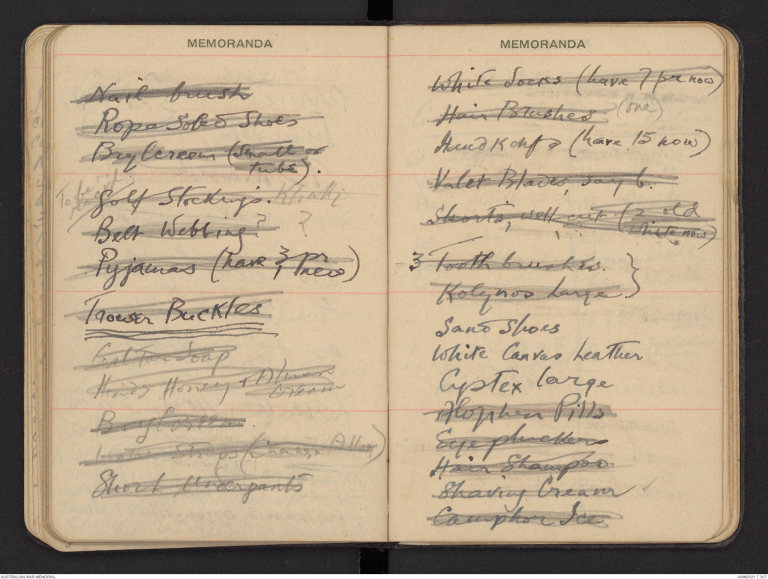 MEMORANDA
Nail brush
Rope Soled Shoes
Brylcreem (Small or
tube).
To be
Golf Stockings. Khaki
Belt Webbing? ?
Pyjamas (have 3 pr
new)
Trouser Buckles
Coal Tar Soap
Hinds Honey + Almond
Cream
Brylcreem
(Change Alloy)
Short Underpants
MEMORANDA
White Socks (have 7 pr now)
Hair Brushes (one)
Hendkchfs (have 15 now)
Valet Blades, say 6.
Shorts, well cut (2 old
white now)
3 Tooth brushes. }
Kolynos large }
Sand Shoes
White Canvas Leather
Cystex large
Alophen Pills
Eye pluckers
Hair Shampoo
Shaving Cream
Camphor Ice
AUSTRALIAN WAR MEMORIAL